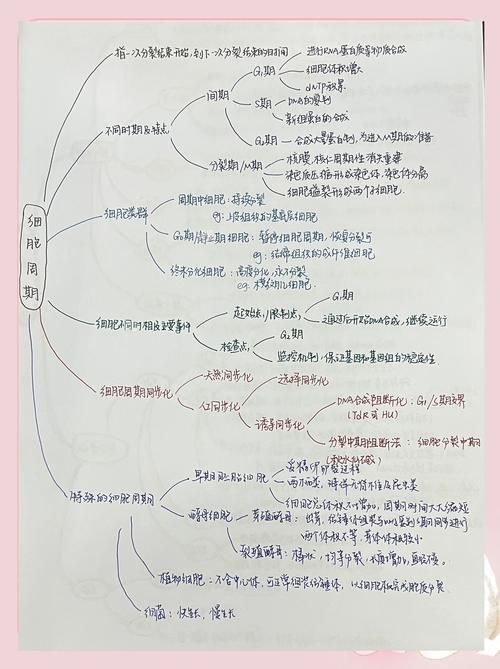 细胞周期
指一次分裂结束开始,到下一次分裂结束的时间
不同时期及特点
间期
G₁期
进行RNA蛋白质等物质合成
细胞体积增大
dNTP积累
S期
DNA的复制
新组蛋白的合成
G₂期
合成大量蛋白质,为进入M期做准备
分裂期/M期
核膜、核仁周期性消失重建
染色质压缩形成染色体,染色体分离
细胞缢裂形成两个子细胞
细胞类群
周期中细胞:持续分裂
eg:上皮组织的基底层细胞
G₀期/静止期细胞:暂停细胞周期,恢复分裂可
eg:结缔组织的成纤维细胞
终末分化细胞:高度分化,永不分裂
细胞不同时相及主要事件
起始点/限制点
G₁期
通过后开始DNA合成,继续运行
检查点
G₂期
监控机制,保证基因和基因组的稳定性
细胞周期同步化
天然同步化
人工同步化
选择同步化
诱导同步化
DNA合成阻断化:G₁/S期交界
(TdR或HU)
分裂中期阻断法:细胞分裂中期
(秋水仙碱)
特殊的细胞周期
早期胚胎细胞
细胞总体积不增加,周期时间大大缩短
酵母细胞
芽殖酵母:
两个体积不等,芽体体积较小
裂殖酵母:棒状,均等分裂,长度增加,直径不
植物细胞:不含中心体,可正常组装纺锤体,以细胞板完成胞质分裂
细菌:快生长,慢生长